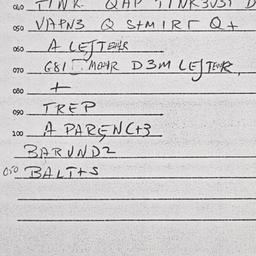 040 TINK QAP TINK3V3T D
050 VAPN3 Q S+MIRT Q+
060 A LESTEHR
070 G8I MOHR D3M LESTEHR,
080 +
090 TREP
100 A PARENC+3
BARUND2
050 BALT+S